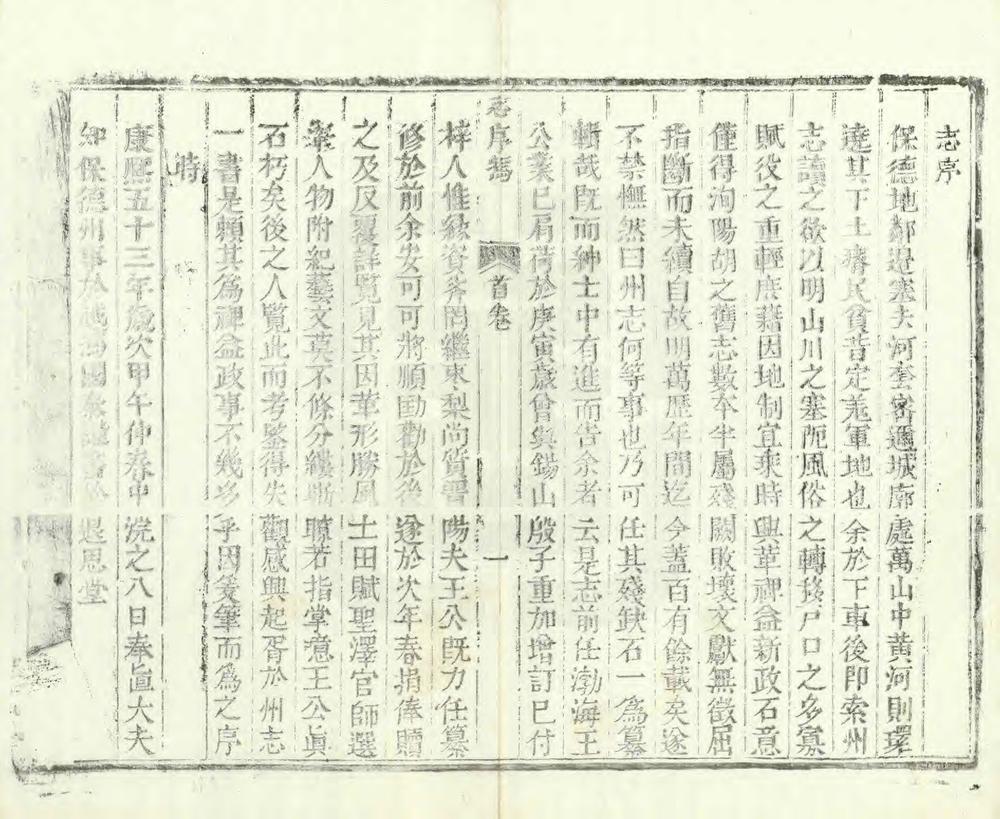 志序
保德地鄰邊塞夫河套密邇城廓處萬山中黃河則環
遶其下土瘠民貧昔定羌軍地也余於下車後即索州
志讀之欲以明山川之塞阨風俗之轉移戶口之多寡
賦役之重輕庶藉因地制宜乘時興革裨益新政石意
僅得洵陽胡之舊志數本半屬殘闕敗壞文獻無徵屈
指斷而未續自故明萬歷年間迄今蓋百有餘載矣遂
不禁憮然曰州志何等事也乃可任其殘缺石一為纂
輯哉既而紳士中有進而告余者云是志前任渤海王
公業已肩荷於庚寅歲曾與錫山殷子重加增訂已付
志序
首卷
一
梓人惟欵資斧罔繼棗梨尚質晋陽夫王公既力任纂
修於前余安可可將順勸於後遂於次年春捐俸贖
之及反覆詳覧見其因革形勝風土田賦聖澤官師選
舉人物附紀藝文莫不條分縷晰瞭若指掌意王公真
石朽矣後之人覧此而考鑒得失觀感興起胥於州志
一書是賴其為裨益政事不幾多乎因爰筆而為之序
時
康熙五十三年歲次甲午仲春中浣之八日奉直大夫
知保德州事於越退思堂